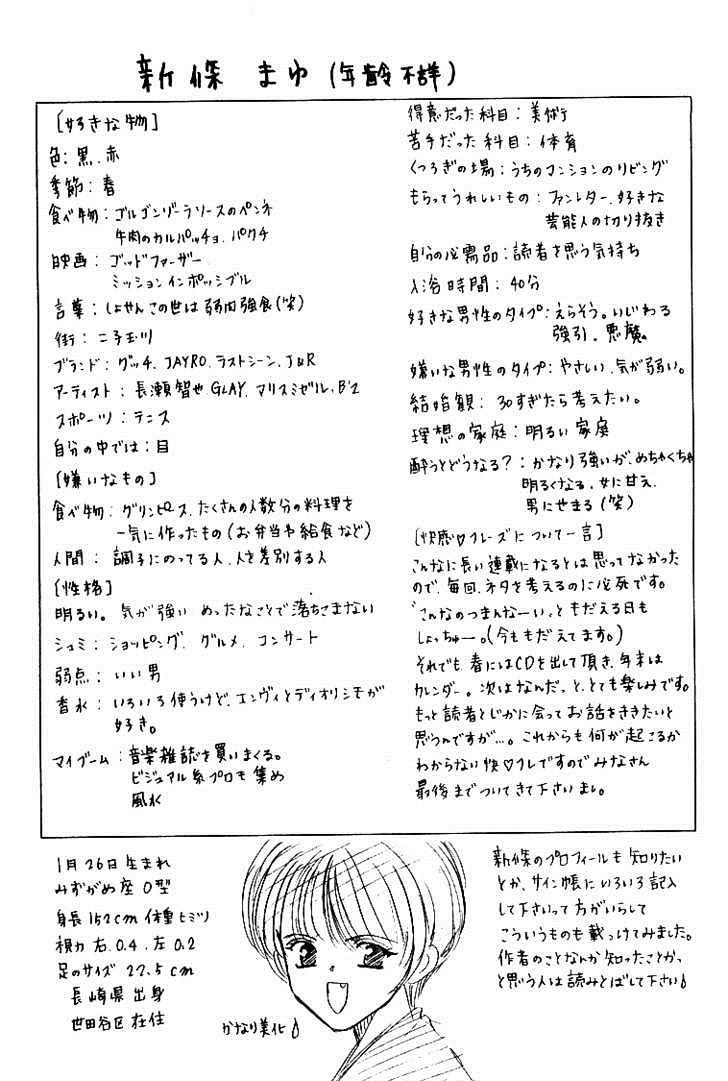 新條 まゆ (年齢不詳)
[好きな物]
色：黒、赤
季節：春
食べ物：ゴルゴンゾーラソースのペンネ
牛肉のカルパッチョ、パクチ
映画：ゴッドファーザー
ミッションインポッシブル
言葉：しょせんこの世は弱肉強食(笑)
街：二子玉川
ブランド：グッチ、JAYRO、ラストシーン、J&R
アーティスト：長瀬智也、GLAY、マリスミゼル、B'z
スポーツ：テニス
自分の中では：目
[嫌いなもの]
食べ物：グリンピース、たくさんの人数分の料理を
一気に作ったもの(お弁当や給食など)
人間：調子にのってる人、人を差別する人
[性格]
明るい。気が強い めったなことで落ちこまない
シュミ：ショッピング、グルメ、コンサート
弱点：いい男
香水：いろいろ使うけど、エンヴィとディオリシモが
好き。
マイブーム：音楽雑誌を買いまくる。
ビジュアル系プロモ集め
風水
得意だった科目：美術
苦手だった科目：体育
くつろぎの場：うちのマンションのリビング
もらってうれしいもの：ファンレター、好きな
芸能人の切り抜き
自分の必需品：読者を思う気持ち
入浴時間：40分
好きな男性のタイプ：えらそう。いじわる
強引。悪魔。
嫌いな男性のタイプ：やさしい、気が弱い。
結婚観：30すぎたら考えたい。
理想の家庭：明るい家庭
酔うとどうなる？：かなり強いが、めちゃくちゃ
明るくなる。女に甘え、
男にせまる(笑)
[快感♡フレーズについて一言]
こんなに長い連載になるとは思ってなかった
ので、毎回、ネタを考えるのに必死です。
「こんなのつまんなーい」ともだえる日も
しょっちゅー。(今ももだえてます。)
それでも春にはCDを出して頂き、年末は
カレンダー。次はなんだっと、とても楽しみです。
もっと読者とじかに会ってお話をききたいと
思うんですが…。これからも何が起こるか
わからない快♡フレですのでみなさん
最後までついてきて下さいまし。
1月26日生まれ
みずがめ座 O型
身長152cm 体重ヒミツ
視力 右、0.4、左0.2
足のサイズ 22.5cm
長崎県出身
世田谷区在住
かなり美化♪
新條のプロフィールも知りたい
とか、サイン帳にいろいろ記入
して下さいって方がいらして
こういうものも載っけてみました。
作者のことなんか知ったことかっ
と思う人は読みとばして下さい♪